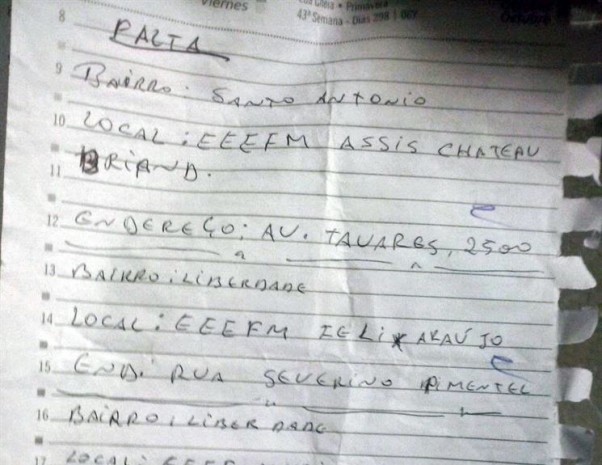 Viernes
43ª Semana - Dias 298 | 067
8
PALTA
9 BAIRRO: SANTO ANTONIO
10 LOCAL: EEEFM ASSIS CHATEAU
11 BRIAND.
12 ENDEREÇO: AV. TAVARES, 2500
13 BAIRRO: LIBERDADE
14 LOCAL: EEEFM FELIX ARAÚJO
15 END: RUA SEVERINO PIMENTEL
16 BAIRRO: LIBERDADE
17 LOCAL: